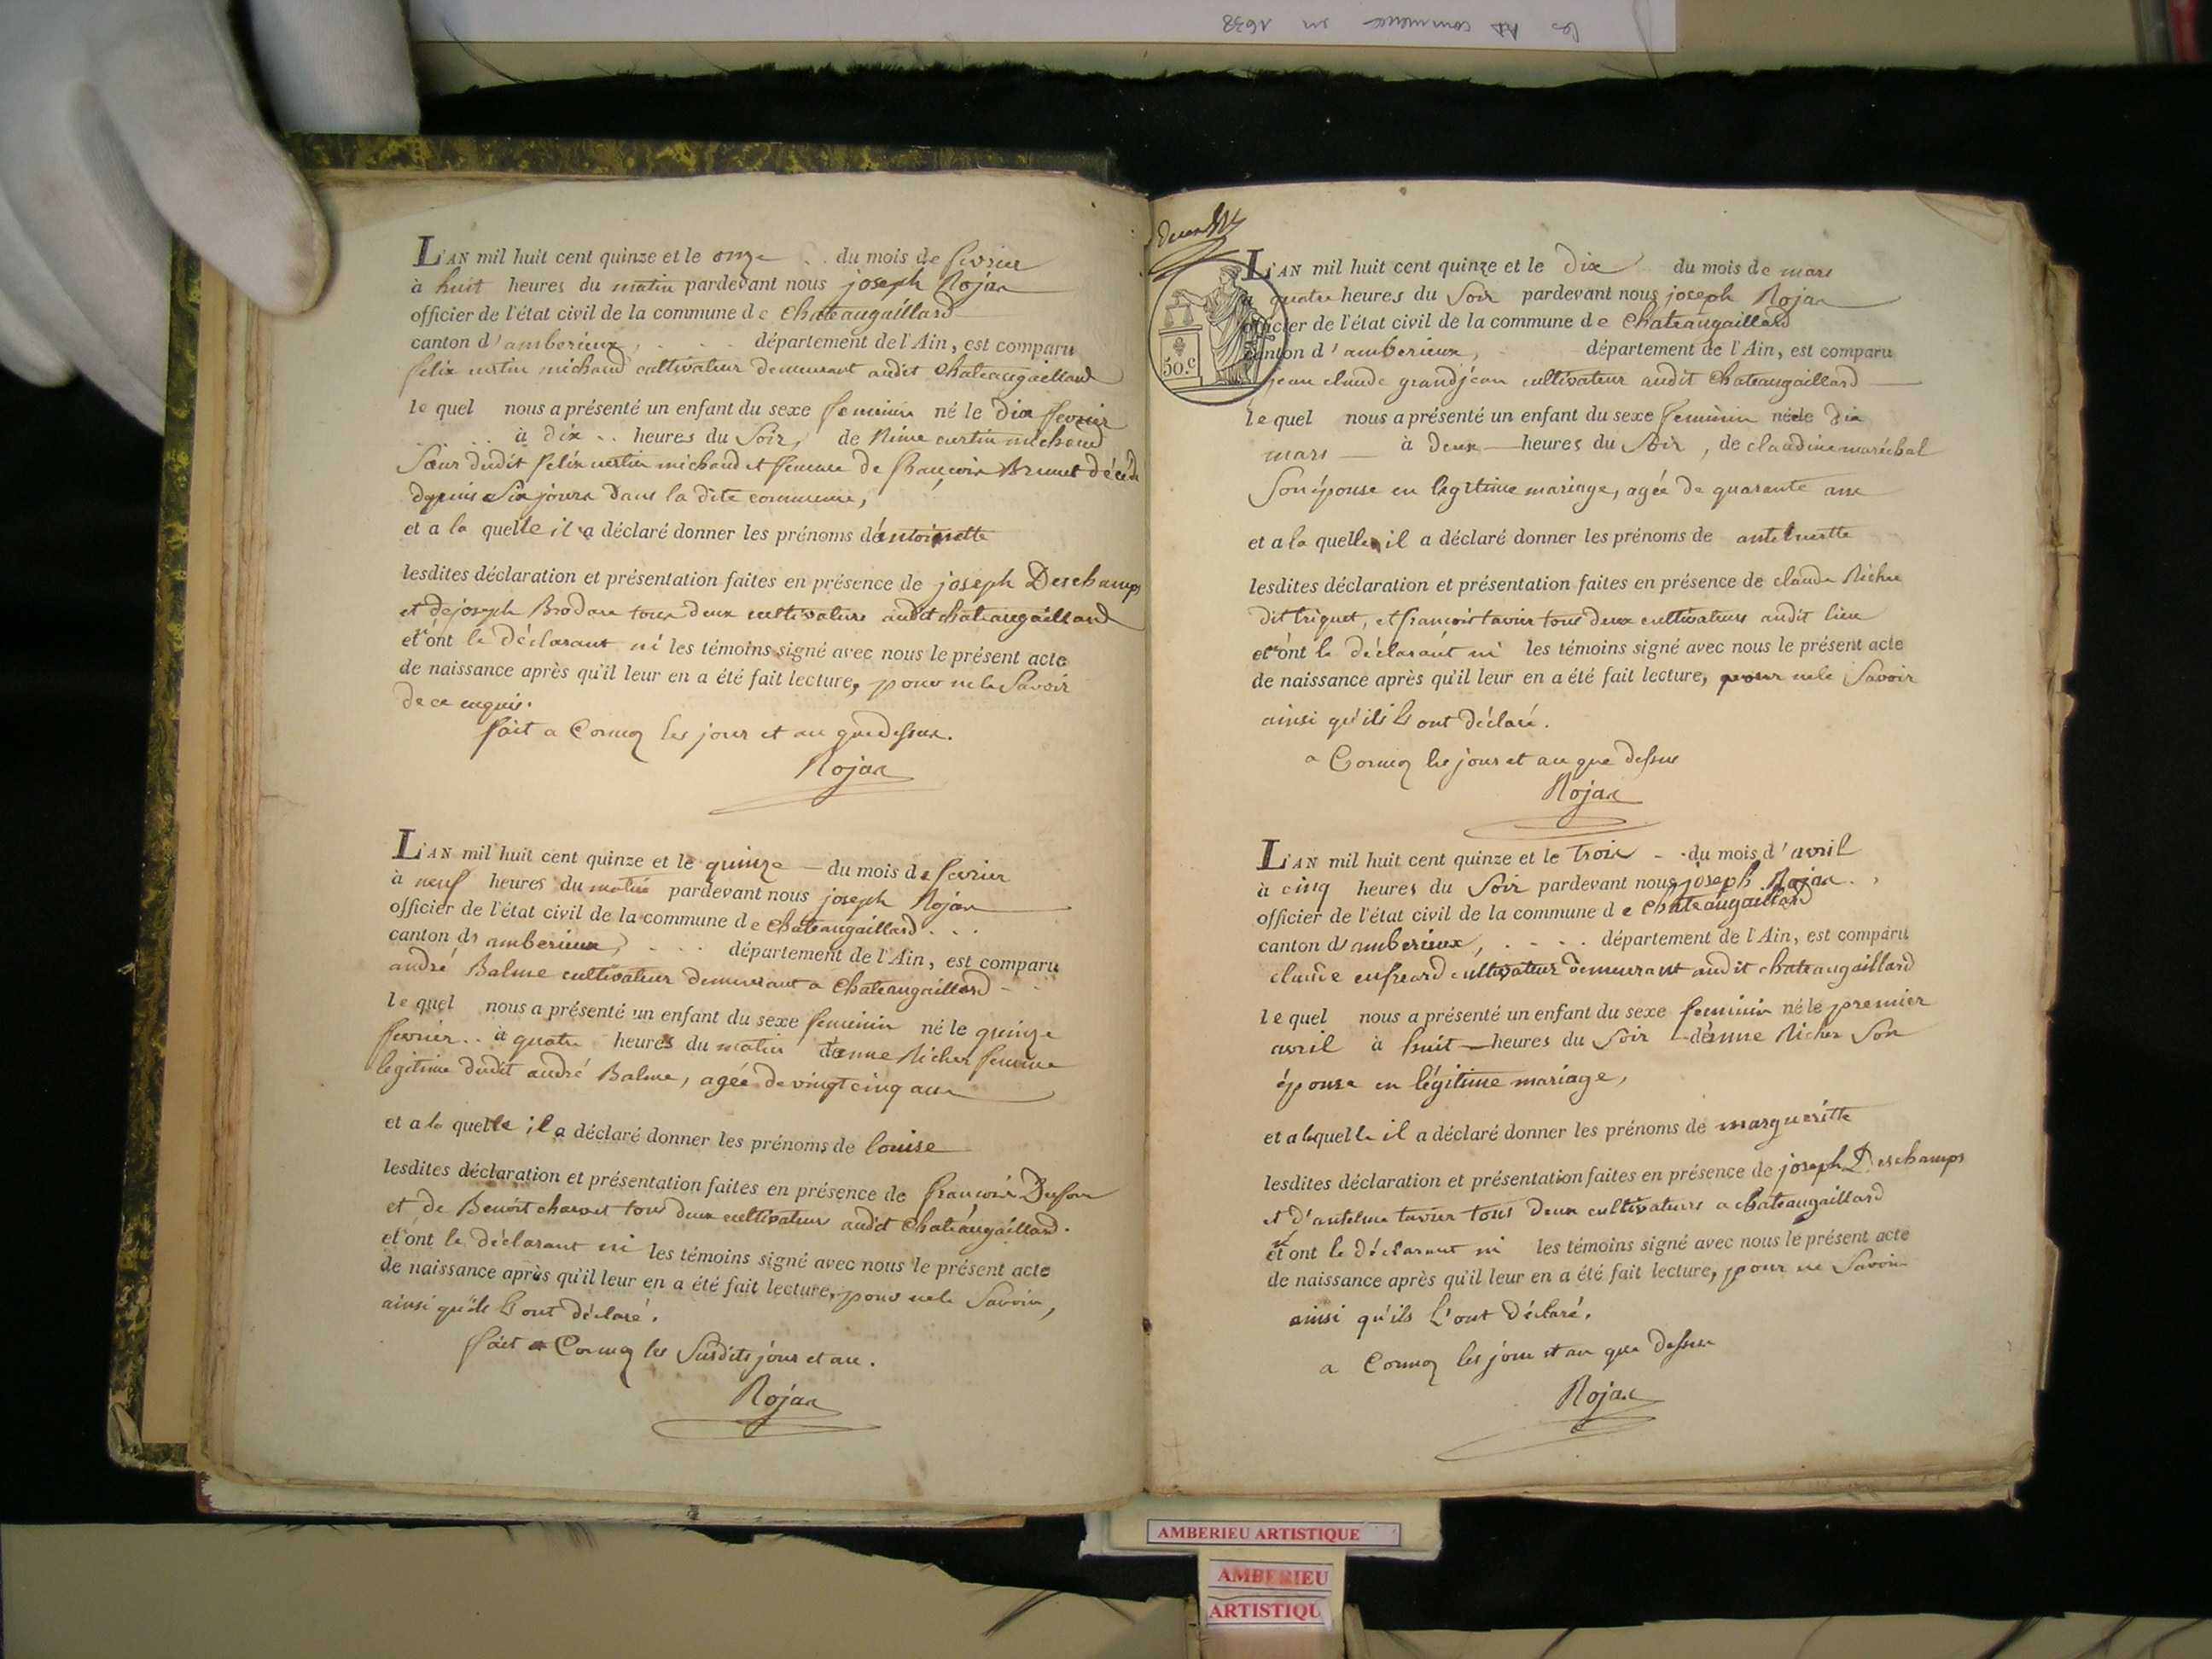 les Ad commence en 1638
L'AN mil huit cent quinze et le onze du mois de fevrier
à huit heures du matin pardevant nous joseph Rojan
officier de l'état civil de la commune de Chateaugaillard
canton d'amberieux, département de l'Ain, est comparu
felix curtin michaud cultivateur demeurant audit Chateaugaillard
le quel nous a présenté un enfant du sexe feminin né le dix fevrier
à dix heures du Soir, de curtin michaud
Sœur dudit felix curtin michaud et femme de françois Brunet décédé
depuis Six jours dans la dite commune,
et a la quelle il a déclaré donner les prénoms d'antoinette
lesdites déclaration et présentation faites en présence de joseph Deschamps
et de joseph Brodare tous deux cultivateurs audit chateaugaillard
et n'ont le déclarant ni les témoins signé avec nous le présent acte
de naissance après qu'il leur en a été fait lecture, pour ne le Savoir
de ce enquis.
fait a Cormoz les jour et an que dessus.
Rojan
L'AN mil huit cent quinze et le quinze du mois de fevrier
à neuf heures du matin pardevant nous joseph Rojan
officier de l'état civil de la commune de Chateaugaillard
canton d'amberieux, département de l'Ain, est comparu
andré Balme cultivateur demeurant a Chateaugaillard
le quel nous a présenté un enfant du sexe feminin né le quinze
fevrier à quatre heures du matin d'anne Richer femme
legitime dudit andré Balme, agée de vingt cinq ans
et a la quelle il a déclaré donner les prénoms de louise
lesdites déclaration et présentation faites en présence de françois Dufour
et de Benoit tous deux cultivateurs audit Chateaugaillard.
et n'ont le déclarant ni les témoins signé avec nous le présent acte
de naissance après qu'il leur en a été fait lecture, pour ne le Savoir,
ainsi qu'ils l'ont déclaré.
fait a Cormoz les Susdits jour et an.
Rojan
50.C
L'AN mil huit cent quinze et le dix du mois de mars
à quatre heures du Soir pardevant nous joseph Rojan
officier de l'état civil de la commune de Chateaugaillard
canton d'amberieux, département de l'Ain, est comparu
jean claude grandjean cultivateur audit Chateaugaillard
le quel nous a présenté un enfant du sexe feminin né le dix
mars à deux heures du Soir, de claudine maréchal
Son épouse en legitime mariage, agée de quarante ans
et a la quelle il a déclaré donner les prénoms de antelmette
lesdites déclaration et présentation faites en présence de claude Richer
dit triquet, et françois tavier tous deux cultivateurs audit lieu
et n'ont le déclarant ni les témoins signé avec nous le présent acte
de naissance après qu'il leur en a été fait lecture, pour ne le Savoir
ainsi qu'ils l'ont déclaré.
a Cormoz les jour et an que dessus
Rojan
L'AN mil huit cent quinze et le trois du mois d'avril
à cinq heures du Soir pardevant nous joseph Rojan
officier de l'état civil de la commune de Chateaugaillard
canton d'amberieux, département de l'Ain, est comparu
claude cultivateur demeurant audit chateaugaillard
le quel nous a présenté un enfant du sexe feminin né le premier
avril à huit heures du Soir d'anne Richer Son
épouse en légitime mariage,
et a la quelle il a déclaré donner les prénoms de margueritte
lesdites déclaration et présentation faites en présence de joseph Deschamps
et d'antelme tavier tous deux cultivateurs a chateaugaillard
et n'ont le déclarant ni les témoins signé avec nous le présent acte
de naissance après qu'il leur en a été fait lecture, pour ne Savoir
ainsi qu'ils l'ont déclaré.
a Cormoz les jour et an que dessus
Rojan
AMBERIEU ARTISTIQUE
AMBERIEU
ARTISTIQU